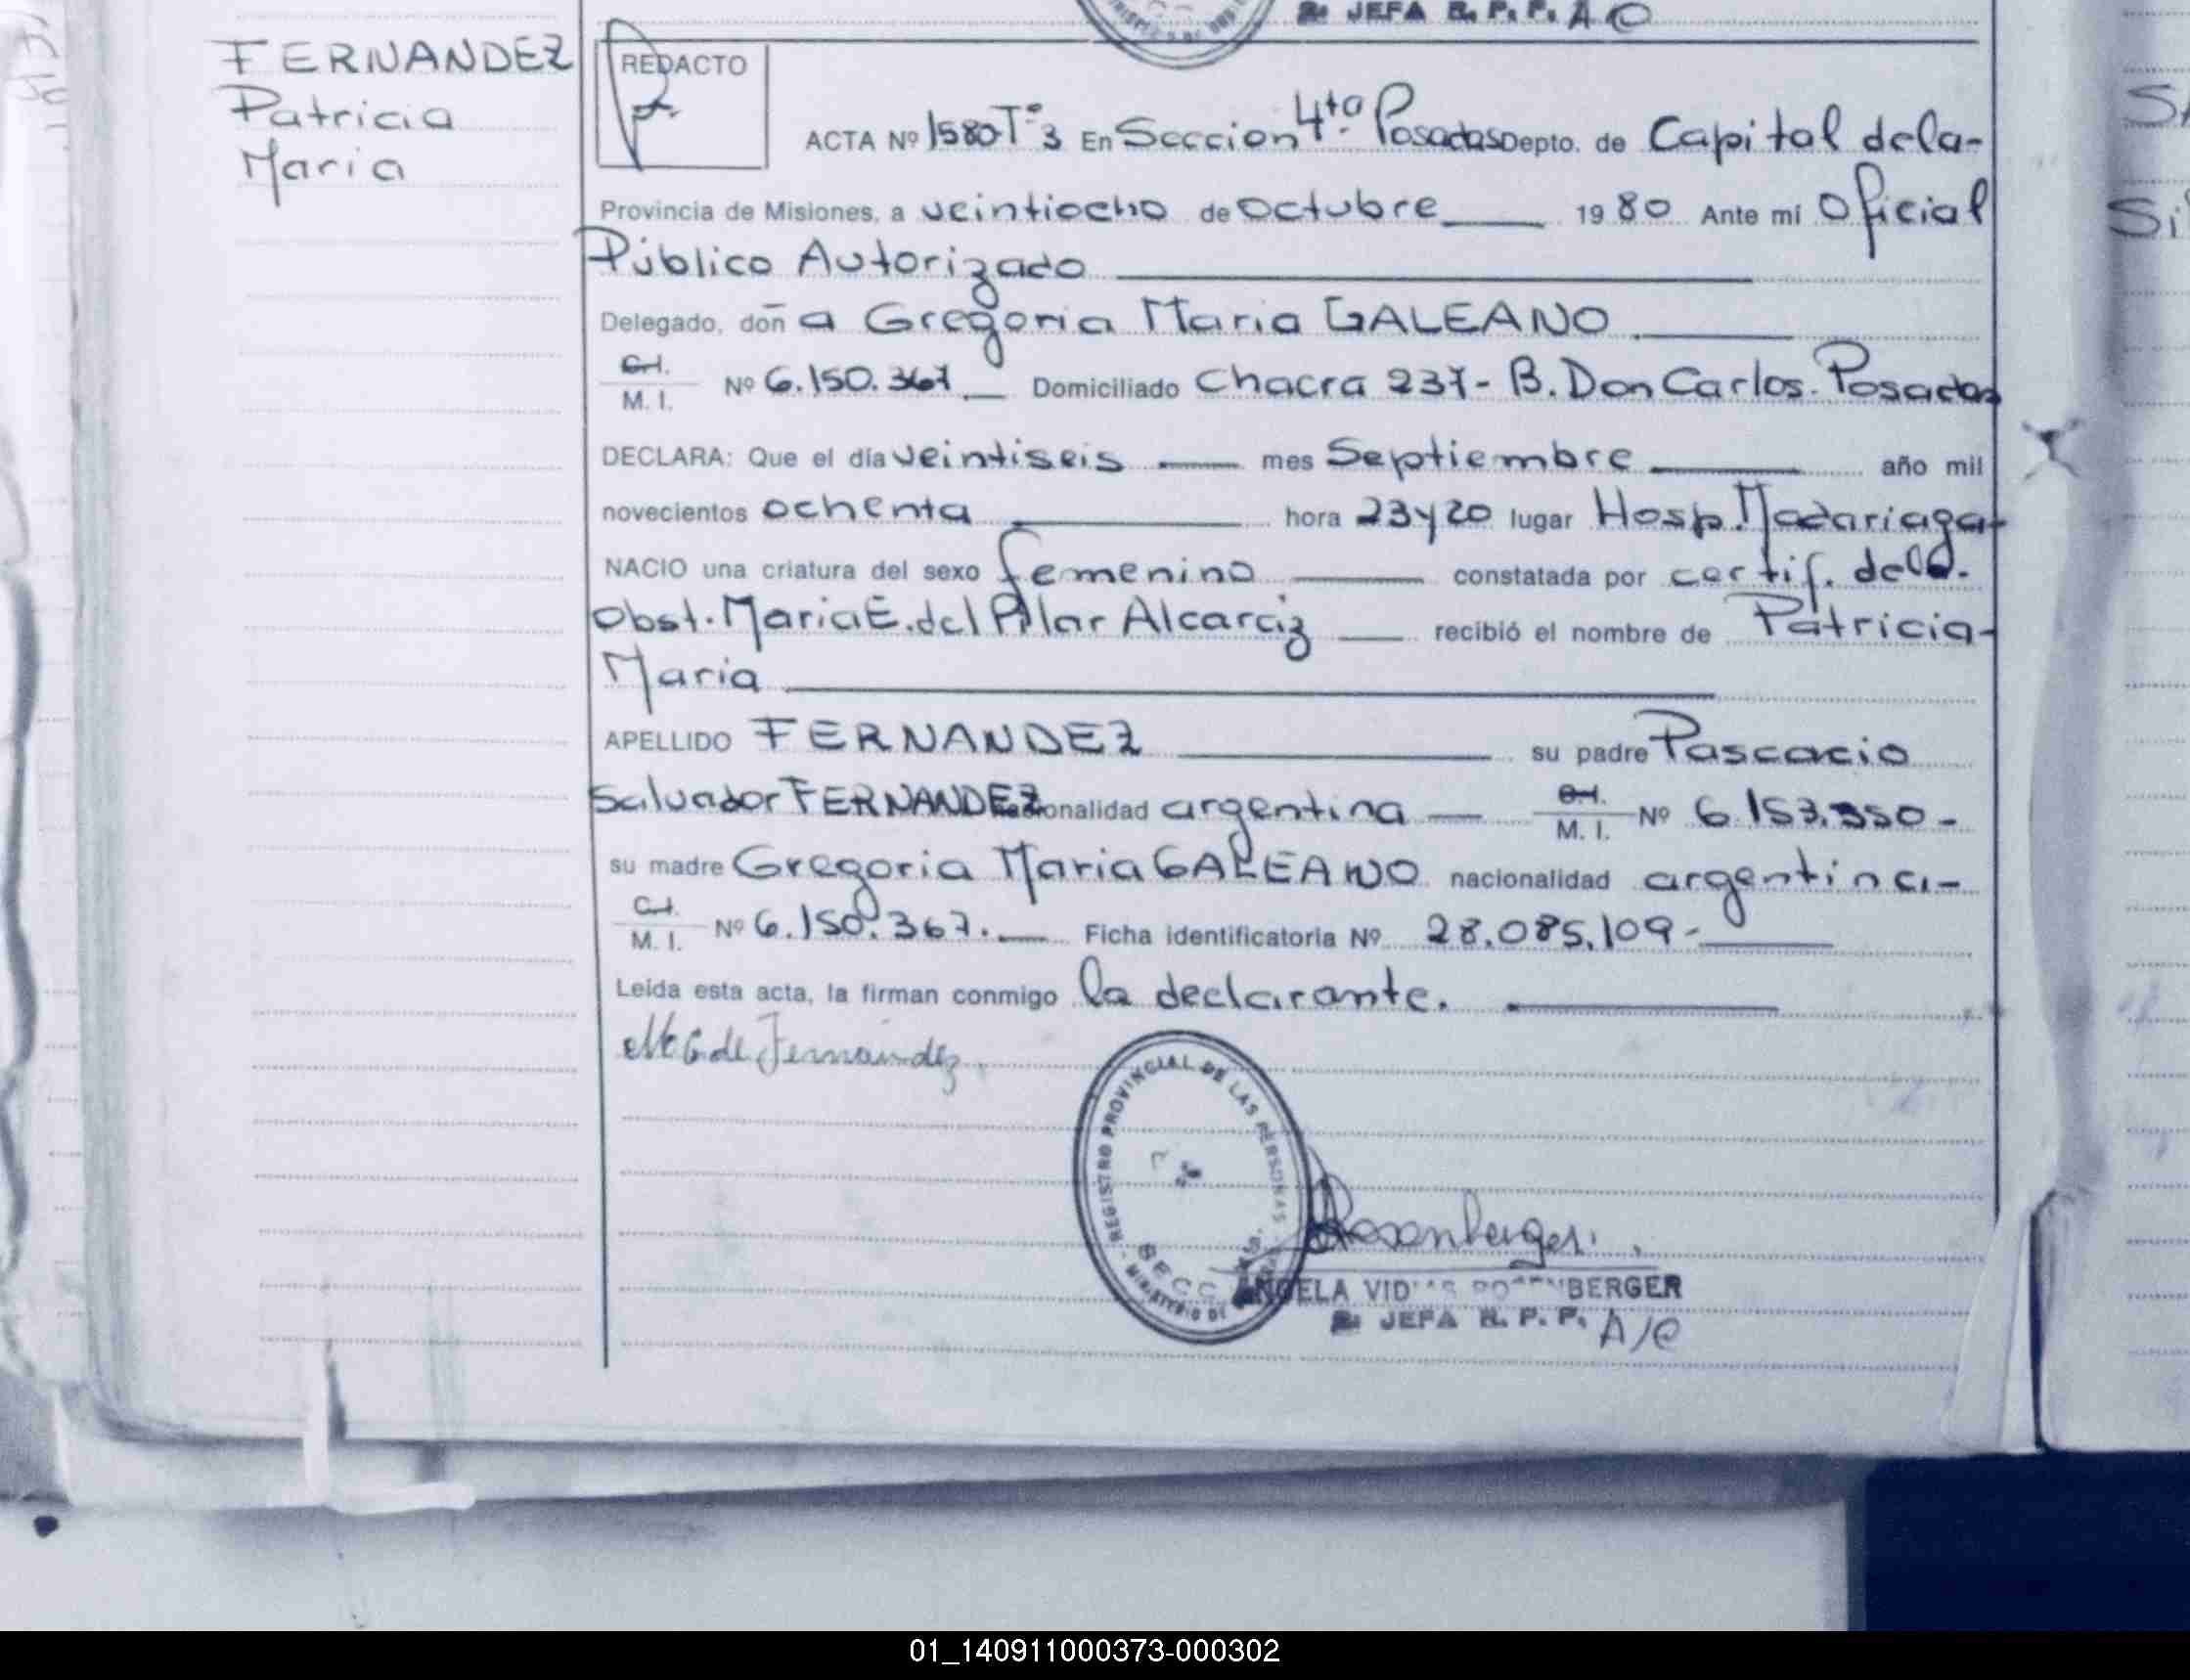 JEFA R. P. P. A C
FERNANDEZ
Patricia
Maria
REDACTO
ACTA Nº 1580 Tº 3 En Seccion 4ta Posadas Depto. de Capital de la-
Provincia de Misiones, a veintiocho de Octubre 1980 Ante mí Oficial
Público Autorizado
Delegado, doña Gregoria Maria GALEANO
C.I. M. I. Nº 6.150.367 Domiciliado Chacra 237- B. Don Carlos. Posadas
DECLARA: Que el día veintiseis mes Septiembre año mil
novecientos ochenta hora 23 y 20 lugar Hosp. Madariaga-
NACIO una criatura del sexo femenino constatada por certif. de la.
Obst. Maria E. del Pilar Alcaraz recibió el nombre de Patricia-
Maria
APELLIDO FERNANDEZ su padre Pascacio
Salvador FERNANDEZ nacionalidad argentina C.I. M. I. Nº 6.153.350-
su madre Gregoria Maria GALEANO nacionalidad argentina-
C.I. M. I. Nº 6.150.367. Ficha identificatoria Nº 28.085.109-
Leída esta acta, la firman conmigo la declarante.
G. de Fernández
REGISTRO PROVINCIAL DE LAS PERSONAS
SECC
MINISTERIO DE
Rosenberger
ANGELA BERGER
JEFA R. P. P. A/C
01_140911000373-000302